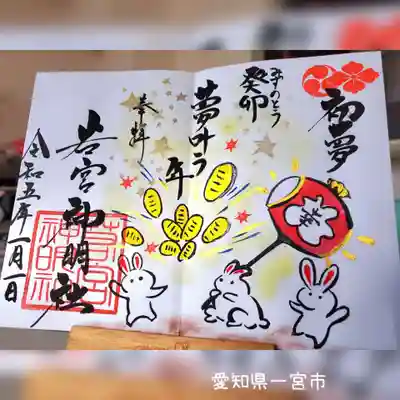 初夢
みずのとう
癸卯
夢叶う
年
奉拝
若宮神明社
令和五年一月一日
愛知県一宮市